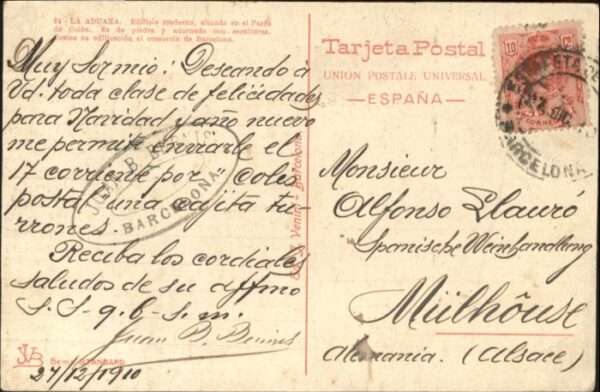 24 - LA ADUANA. Edificio moderno, situado en el Paseo
de Colón. Es de piedra y adornado con esculturas.
Costeó su edificación el comercio de Barcelona.
Muy Sr mio: Deseando á
Vd. toda clase de felicidades
para Navidad y año nuevo
me permite enviarle el
17 corriente por coles
postal una cajita tu-
rrones.
Reciba los cordiales
saludos de su affmo
S. S. q. b. s. m.
Juan B.
27/12/1910
JVB
STANDARD
JUAN B.
BARCELONA
Venini - Barcelona
Tarjeta Postal
UNION POSTALE UNIVERSAL
ESPAÑA
10
10
DIC
BARCELONA
Monsieur
Alfonso Llauró
Spanische Weinhandlung
Mülhôuse
Alemania. (Alsace)